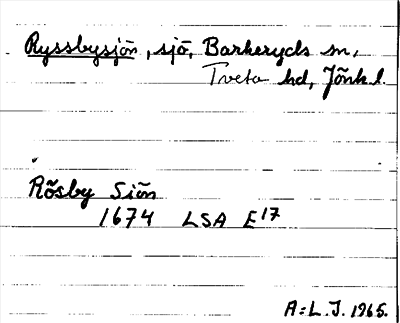 Ryssbysjön, sjö, Barkeryds sn,
Tveta hd, Jönk.l.
Rösby Siön
1674 LSA E17
A:L.J. 1965.